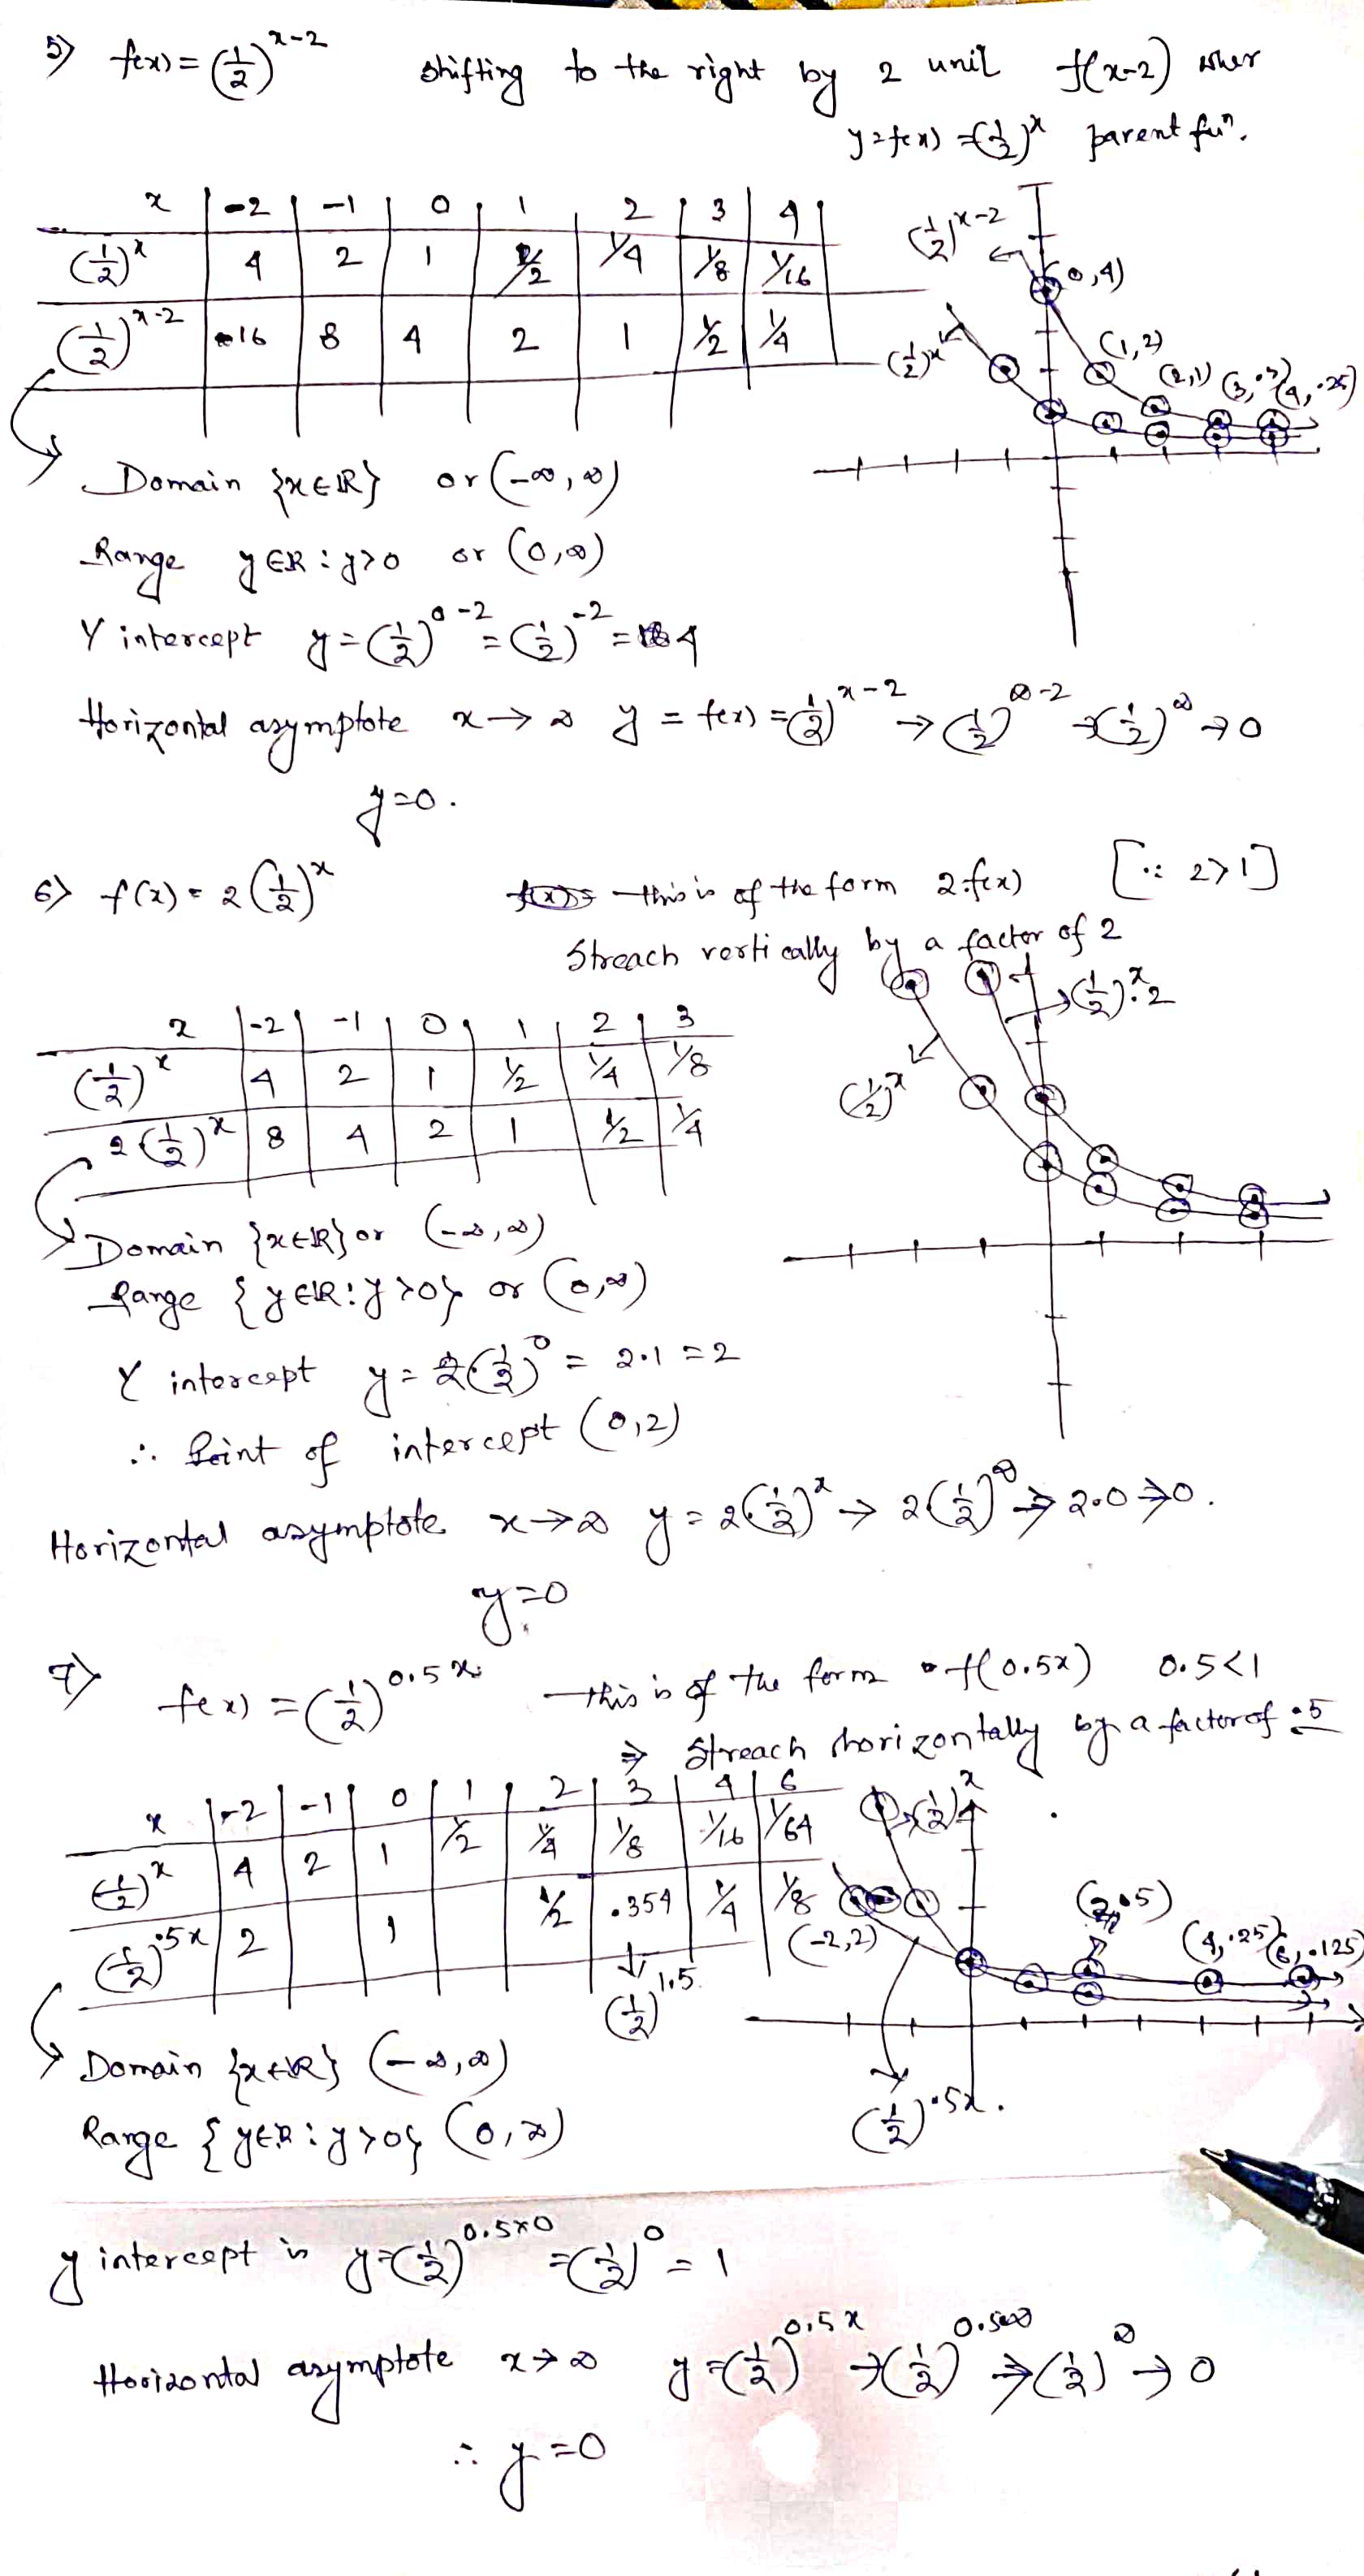 5) f(x) = (1/2)^(x-2) shifting to the right by 2 unit f(x-2) wher
y = f(x) = (1/2)^x parent fuⁿ.
x | -2 | -1 | 0 | 1 | 2 | 3 | 4
(1/2)^x | 4 | 2 | 1 | 1/2 | 1/4 | 1/8 | 1/16
(1/2)^(x-2) | 16 | 8 | 4 | 2 | 1 | 1/2 | 1/4
(1/2)^(x-2)
(0,4)
(1/2)^x
(1,2) (2,1) (3,.5) (4,.25)
Domain {x∈ℝ} or (-∞, ∞)
Range y∈ℝ : y>0 or (0,∞)
Y intercept y = (1/2)^(0-2) = (1/2)^(-2) = 4
Horizontal asymptote x→∞ y = f(x) = (1/2)^(x-2) → (1/2)^(∞-2) → (1/2)^∞ → 0
y=0.
6) f(x) = 2(1/2)^x this is of the form 2·f(x) [∵ 2>1]
Streach vertically by a factor of 2
x | -2 | -1 | 0 | 1 | 2 | 3
(1/2)^x | 4 | 2 | 1 | 1/2 | 1/4 | 1/8
2(1/2)^x | 8 | 4 | 2 | 1 | 1/2 | 1/4
(1/2)^x·2
(1/2)^x
Domain {x∈ℝ} or (-∞,∞)
Range {y∈ℝ:y>0} or (0,∞)
Y intercept y = 2(1/2)^0 = 2·1 = 2
∴ Point of intercept (0,2)
Horizontal asymptote x→∞ y = 2(1/2)^x → 2(1/2)^∞ → 2·0 → 0.
y=0
7) f(x) = (1/2)^(0.5x) this is of the form f(0.5x) 0.5<1
⇒ Streach horizontally by a factor of .5
x | -2 | -1 | 0 | 1 | 2 | 3 | 4 | 6
(1/2)^x | 4 | 2 | 1 | 1/2 | 1/4 | 1/8 | 1/16 | 1/64
(1/2)^(.5x) | 2 | | 1 | | 1/2 | .354 | 1/4 | 1/8
(1/2)^1.5
(1/2)^x
(-2,2)
(2,.5)
(4,.25) (6,.125)
(1/2)^(.5x).
Domain {x∈ℝ} (-∞,∞)
Range {y∈ℝ : y>0} (0,∞)
y intercept is y=(1/2)^(0.5×0) =(1/2)^0 = 1
Horizontal asymptote x→∞ y=(1/2)^(0.5x) →(1/2)^(0.5×∞) →(1/2)^∞ → 0
∴ y=0